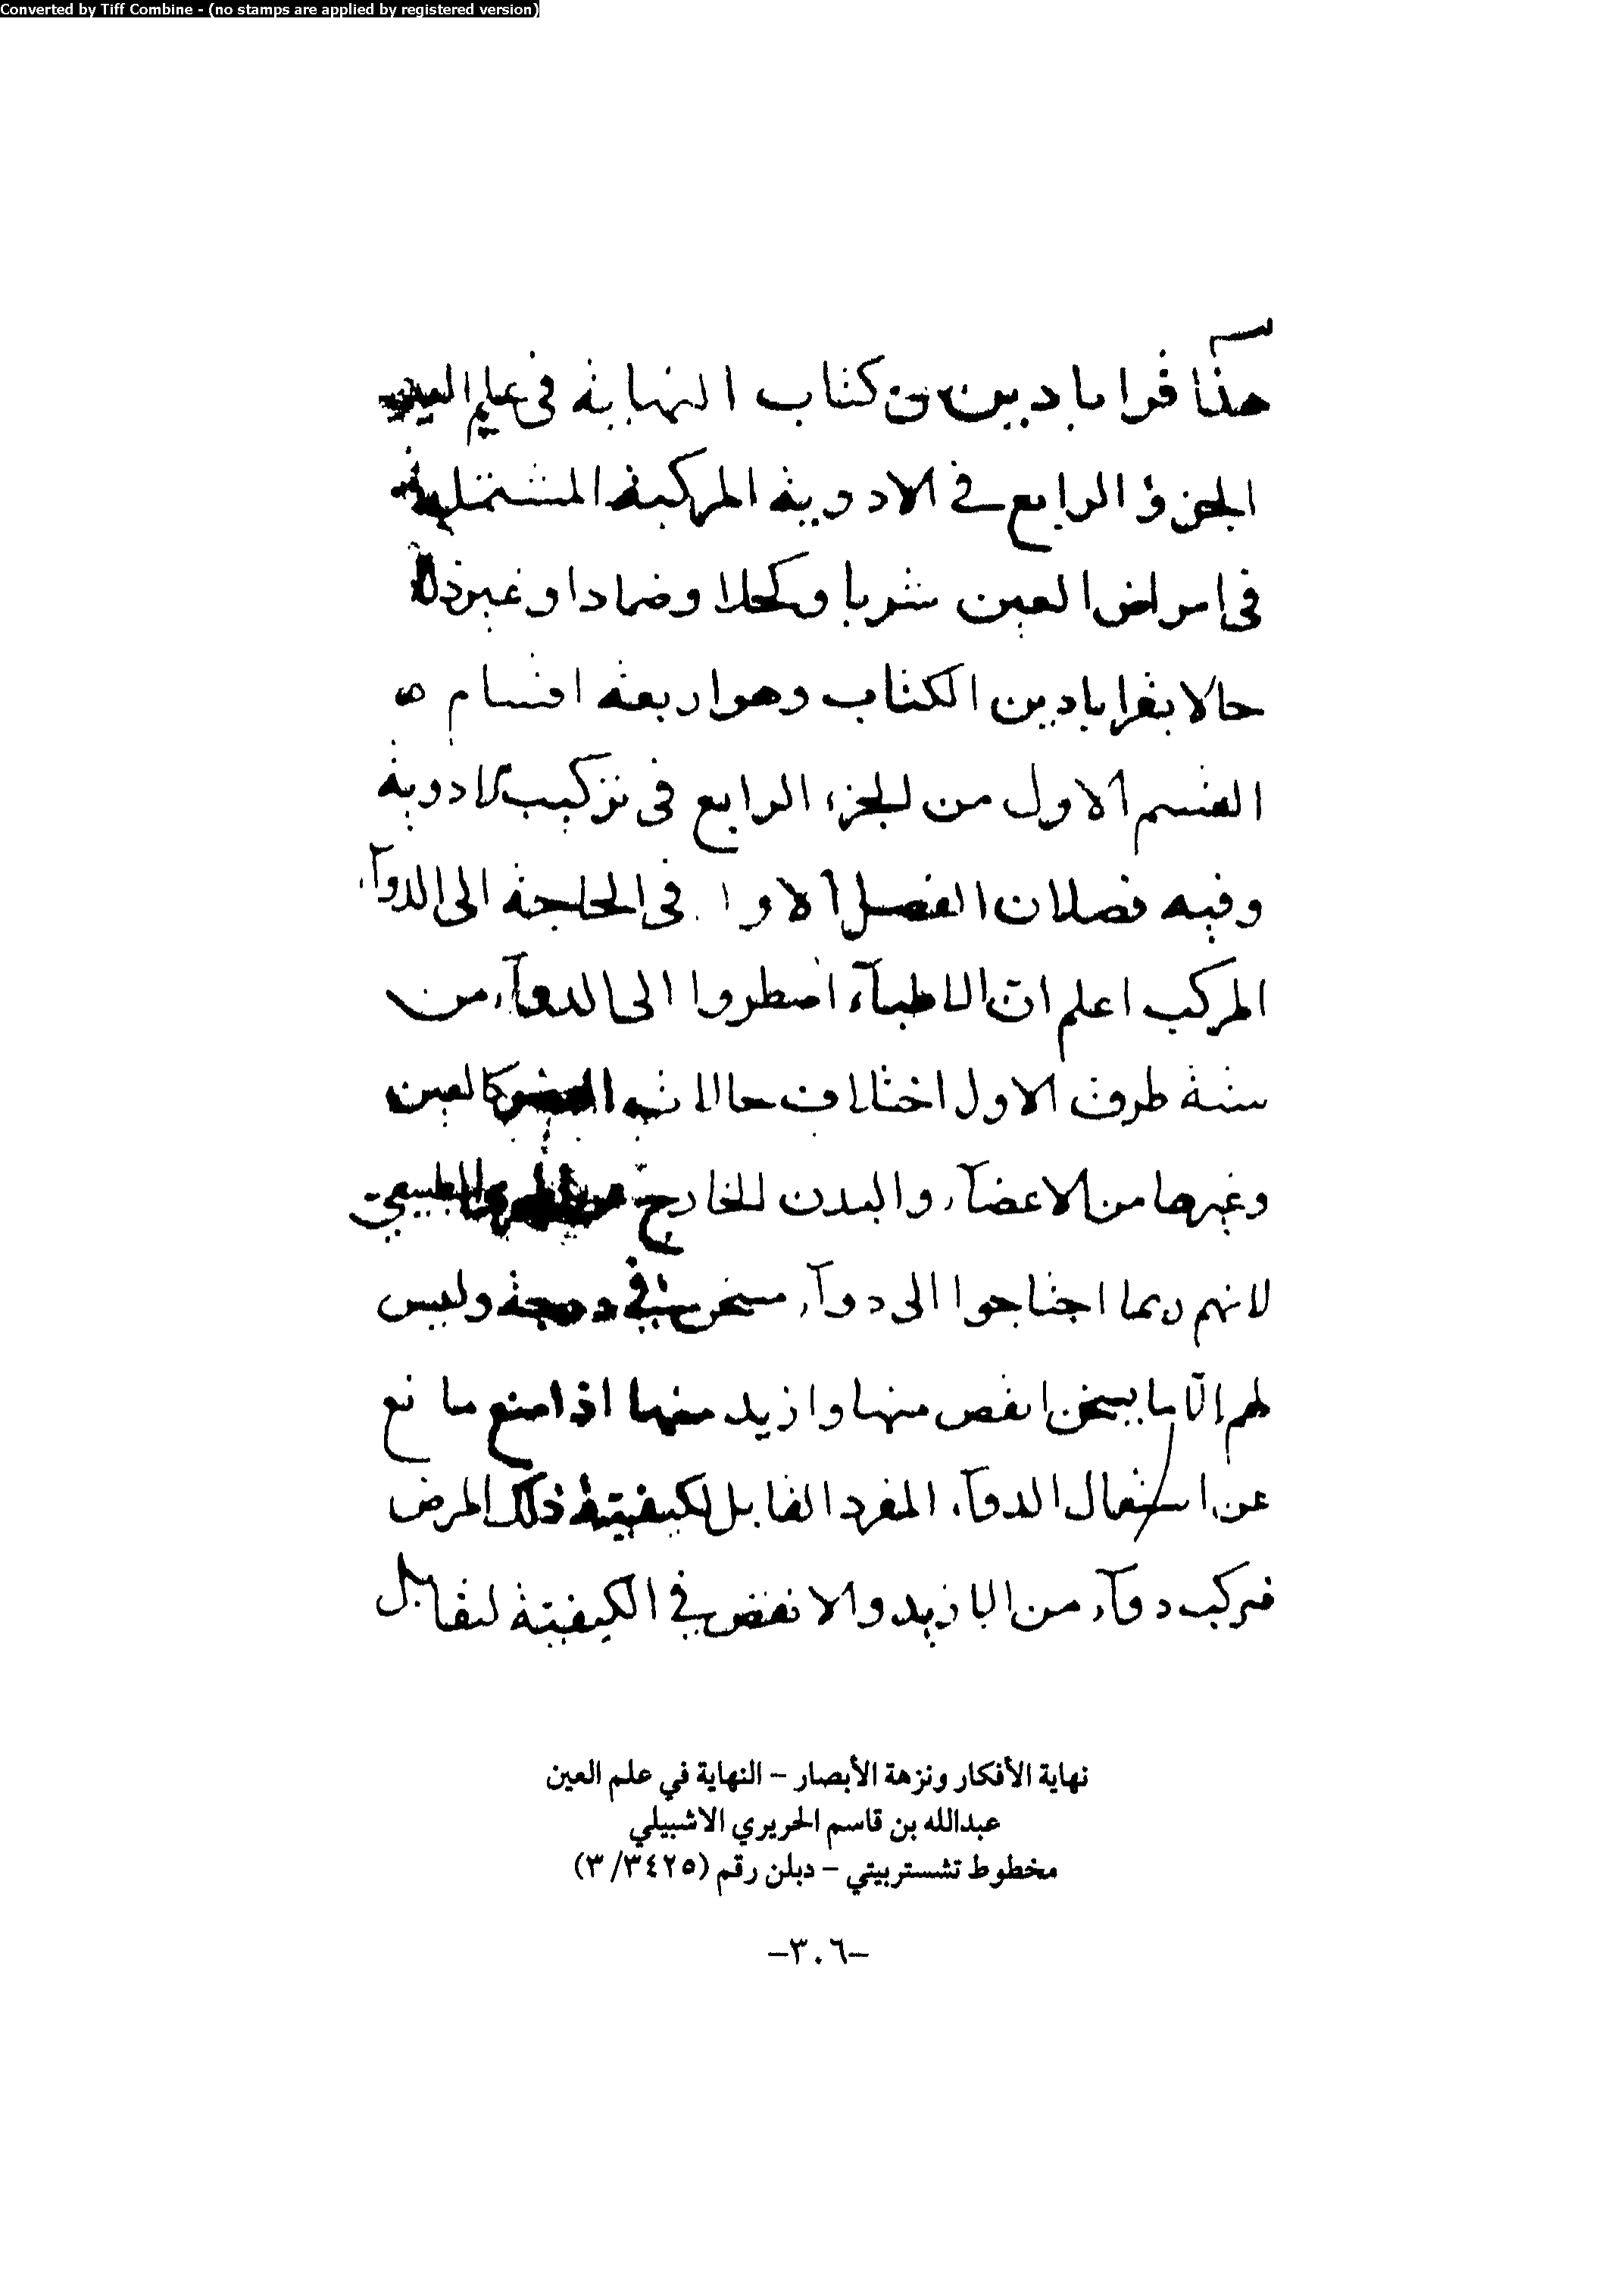 Converted by Tiff Combine - (no stamps are applied by registered version)
هذا قراباديىن من كتاب النهاية فى علم العين
الجزؤ الرابع في الادوية المركبة المستعملة
فى امراض العين شربا وكحلا وضمادا وغير ذلك
حالا بقراباديىن الكتاب وهو اربعة اقسام ه
القسم الاول من الجزء الرابع فى تركيب الادوية
وفيه فصلان الفصل الاول فى الحاجة الى الدوآء
المركب اعلم ان الاطبآء اضطروا الى الدوآء من
ستة طرق الاول اختلاف حالات كالعين
وغيرها من الاعضآء والبدن للخارج الطبيعي
لانهم ربما احتاجوا الى دوآء مسخن في درجة وليس
لهم الّا ما يسخن انقص منها وازيد منها اذا منع مانع
عن استعمال الدوآء المفرد القابل لكيفيّة ذلك المرض
فيركب دوآء من الازيد والانقص في الكيفيّة ليقابل
نهاية الأفكار ونزهة الأبصار – النهاية في علم العين
عبدالله بن قاسم الحريري الاشبيلي
مخطوط تشستربيتي – دبلن رقم (٣/٣٤٢٥)
–٣٠٦–